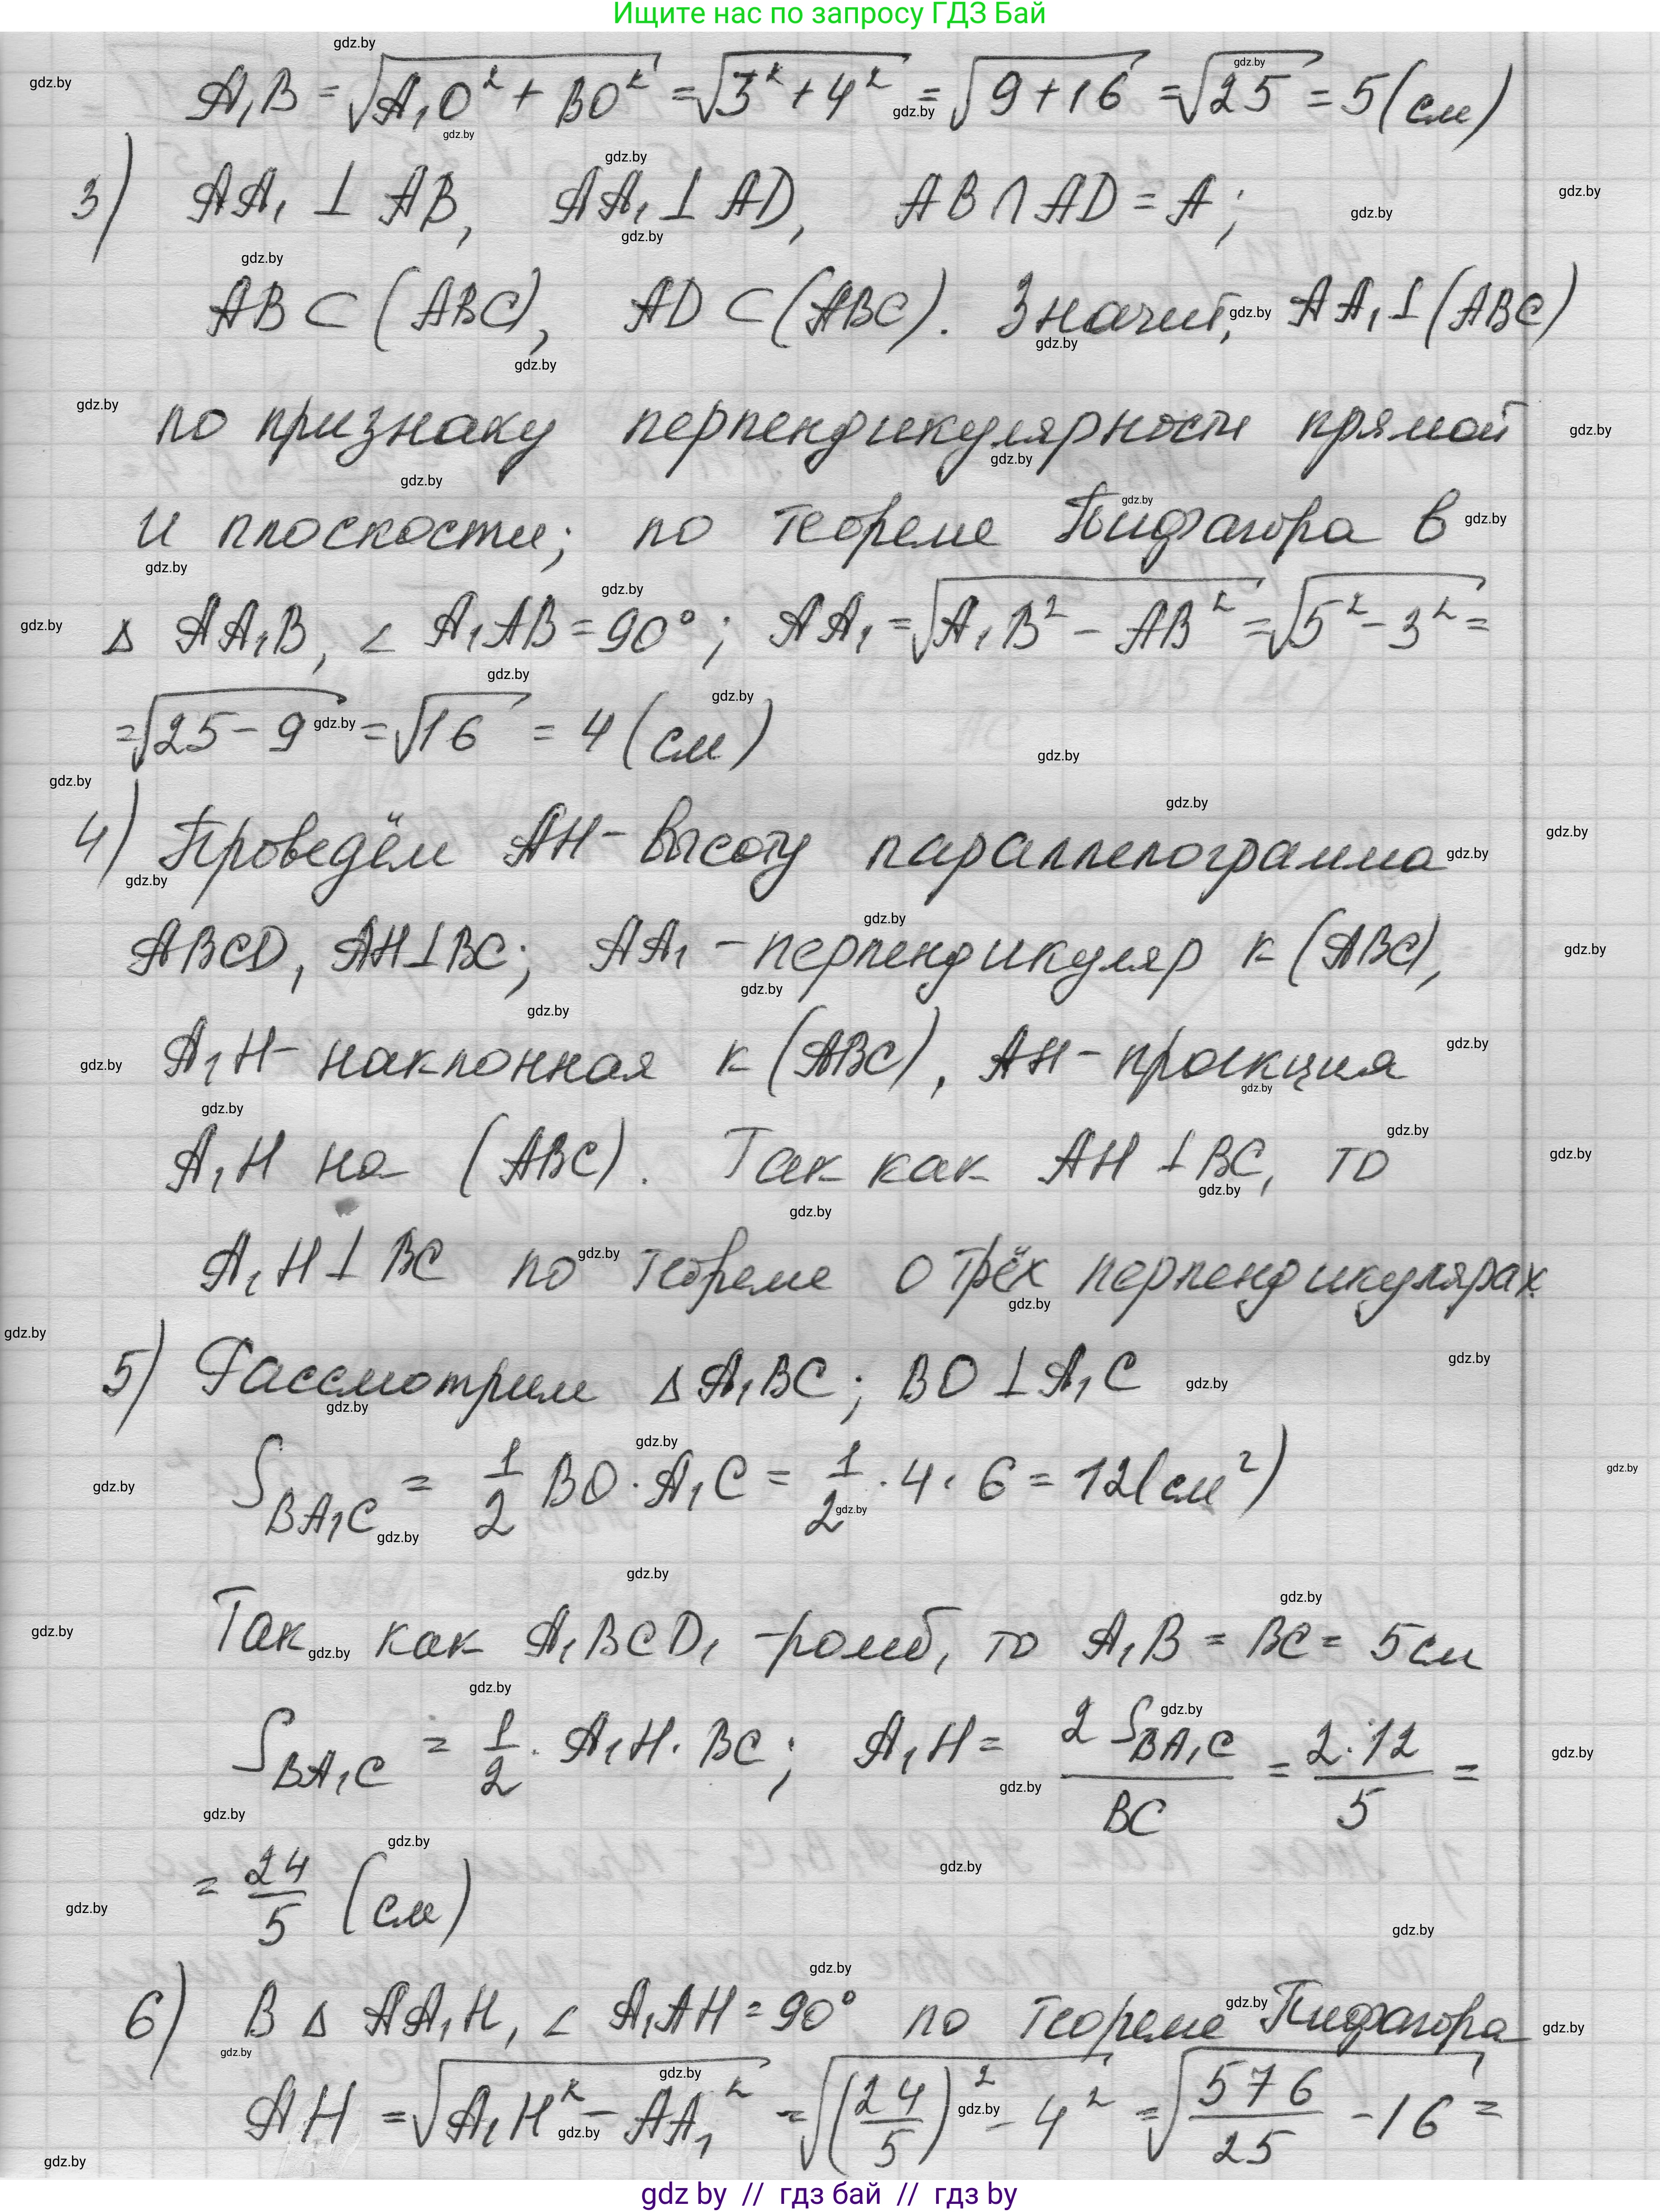 Ищите нас по запросу ГДЗ Бай
A₁B = √(A₁O² + BO²) = √(3² + 4²) = √(9+16) = √25 = 5(см)
3) AA₁ ⊥ AB, AA₁ ⊥ AD, AB ∩ AD = A;
AB ⊂ (ABC), AD ⊂ (ABC). Значит, AA₁ ⊥ (ABC)
по признаку перпендикулярности прямой
и плоскости; по теореме Пифагора в
Δ AA₁B, ∠ A₁AB = 90°; AA₁ = √(A₁B² − AB²) = √(5² − 3²) =
= √(25 − 9) = √16 = 4 (см)
4) Проведём AH - высоту параллелограмма
ABCD, AH ⊥ BC; AA₁ - перпендикуляр к (ABC),
A₁H - наклонная к (ABC), AH - проекция
A₁H на (ABC). Так как AH ⊥ BC, то
A₁H ⊥ BC по теореме о трёх перпендикулярах.
5) Рассмотрим Δ A₁BC; BO ⊥ A₁C
S_BA₁C = 1/2 BO · A₁C = 1/2 · 4 · 6 = 12(см²)
Так как A₁BCD₁ - ромб, то A₁B = BC = 5см
S_BA₁C = 1/2 · A₁H · BC; A₁H = 2 S_BA₁C / BC = 2·12 / 5 =
= 24/5 (см)
6) В Δ AA₁H, ∠ A₁AH = 90° по теореме Пифагора
AH = √(A₁H² − AA₁²) = √((24/5)² − 4²) = √(576/25 − 16) =
gdz by // гдз бай // гдз by